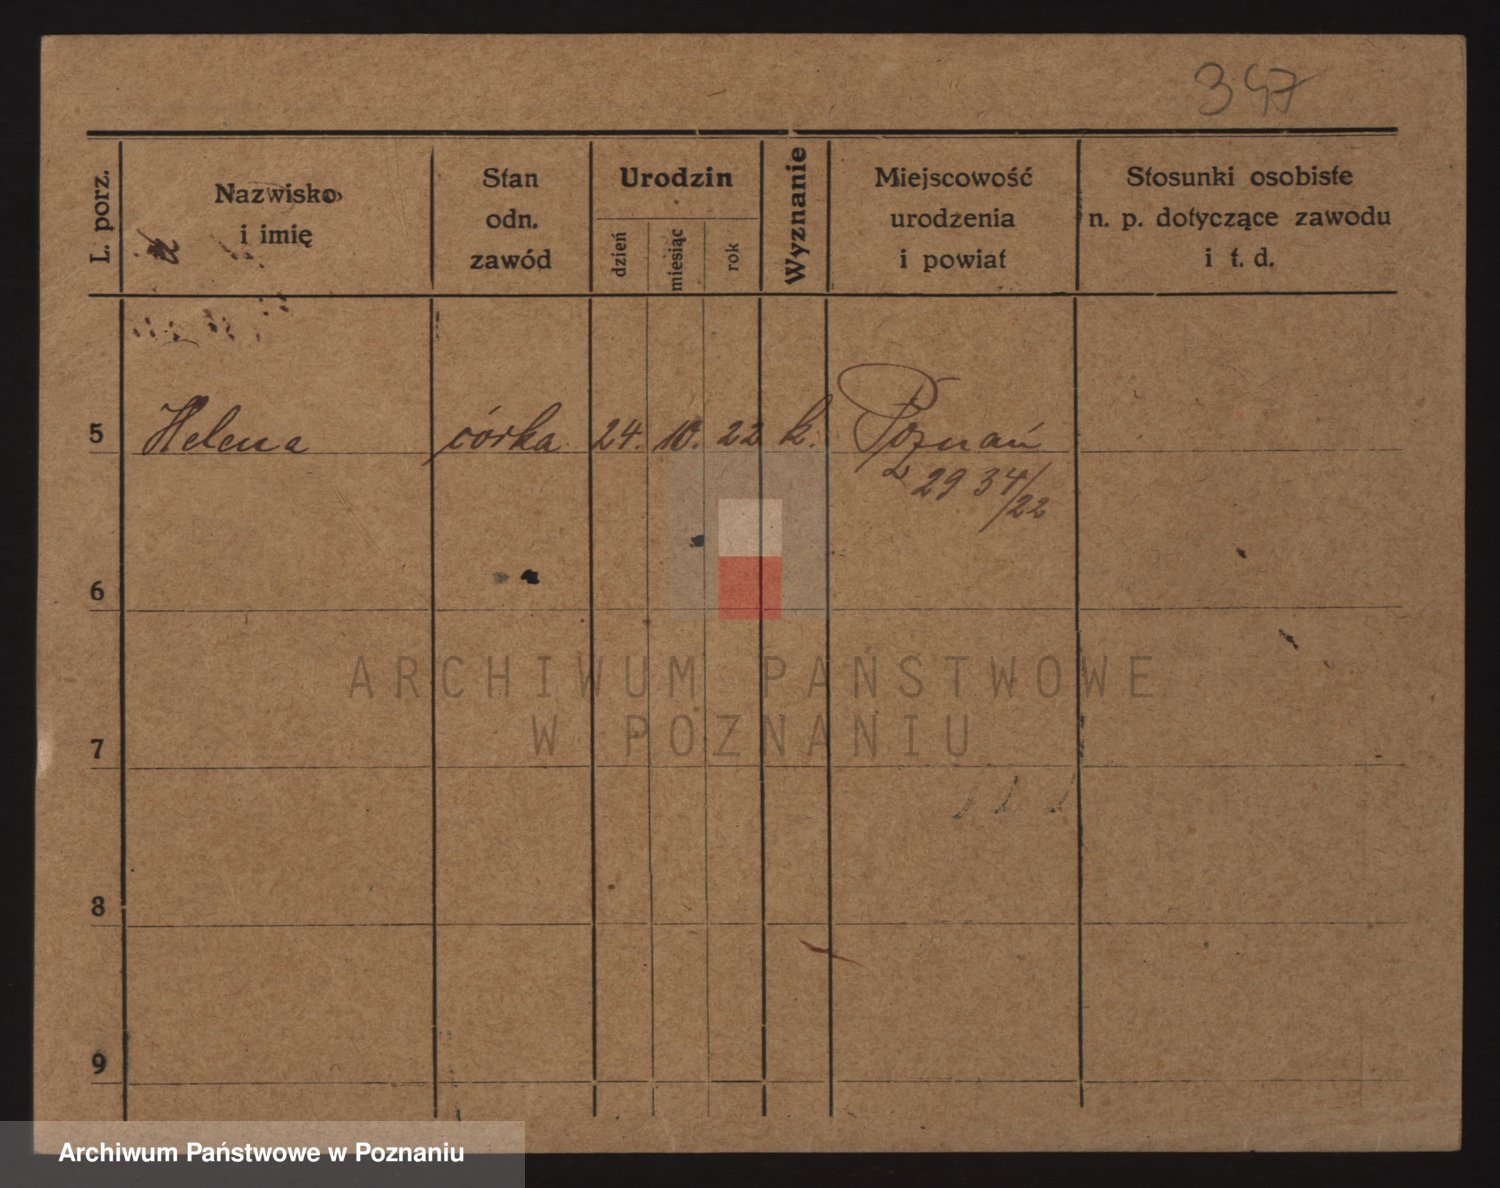 347
L. porz.
Nazwisko
i imię
Stan
odn.
zawód
Urodzin
dzień
miesiąc
rok
Wyznanie
Miejscowość
urodzenia
i powiat
Stosunki osobiste
n. p. dotyczące zawodu
i t. d.
5 Helena córka 24. 10. 22 k. Poznań
29 34/22
6
ARCHIWUM PAŃSTWOWE
W POZNANIU
7
8
9
Archiwum Państwowe w Poznaniu